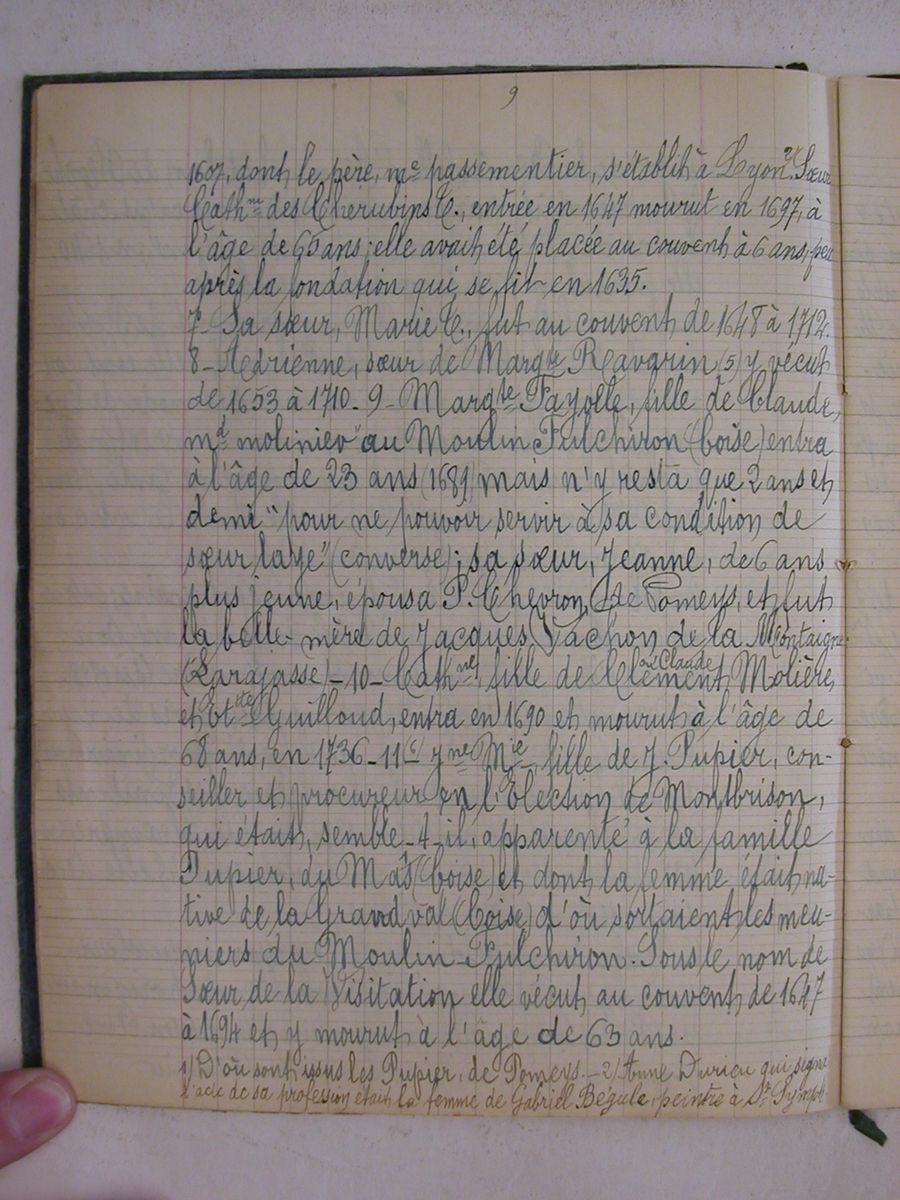 9
1607, dont le père, me passementier, s'établit à Lyon. 2/ Sœur
Cathne des Chérubins C., entrée en 1647 mourut en 1697, à
l'âge de 65 ans; elle avait été placée au couvent à 6 ans, peu
après la fondation qui se fit en 1635.
7- Sa sœur, Marie C., fut au couvent de 1648 à 1712.
8- Adrienne, sœur de Margte Ravarin (5) y vécut
de 1653 à 1710- 9- Margte Fayolle, fille de Claude,
md molinier au Moulin Fulchiron (Coise) entra
à l'âge de 23 ans (1689) mais n'y resta que 2 ans et
demi "pour ne pouvoir servir à sa condition de
sœur laye" (converse); sa sœur, Jeanne, de 6 ans
plus jeune, épousa P. Chevron, de Pomeys, et fut
la belle-mère de Jacques Vachon de la Montaigne
(Larajasse)- 10- Cathne, fille de Clément ou Claude Molière,
et Guilloud, entra en 1690 et mourut à l'âge de
68 ans, en 1736- 11 Jne Mie, fille de J. Pupier, con-
seiller et procureur en l'Election de Montbrison,
qui était, semble-t-il, apparenté à la famille
Pupier, du Mas (Coise) et dont la femme était na-
tive de la Grand val (Coise) d'où sortaient les meu-
niers du Moulin-Fulchiron. Sous le nom de
Sœur de la Visitation elle vécut au couvent de 1647
à 1694 et y mourut à l'âge de 63 ans.
1/ D'où sont issus les Pupier, de Pomeys.- 2/ Anne Durieu qui signe
l'acte de sa profession était la femme de Gabriel Bégule, peintre à St Symph.